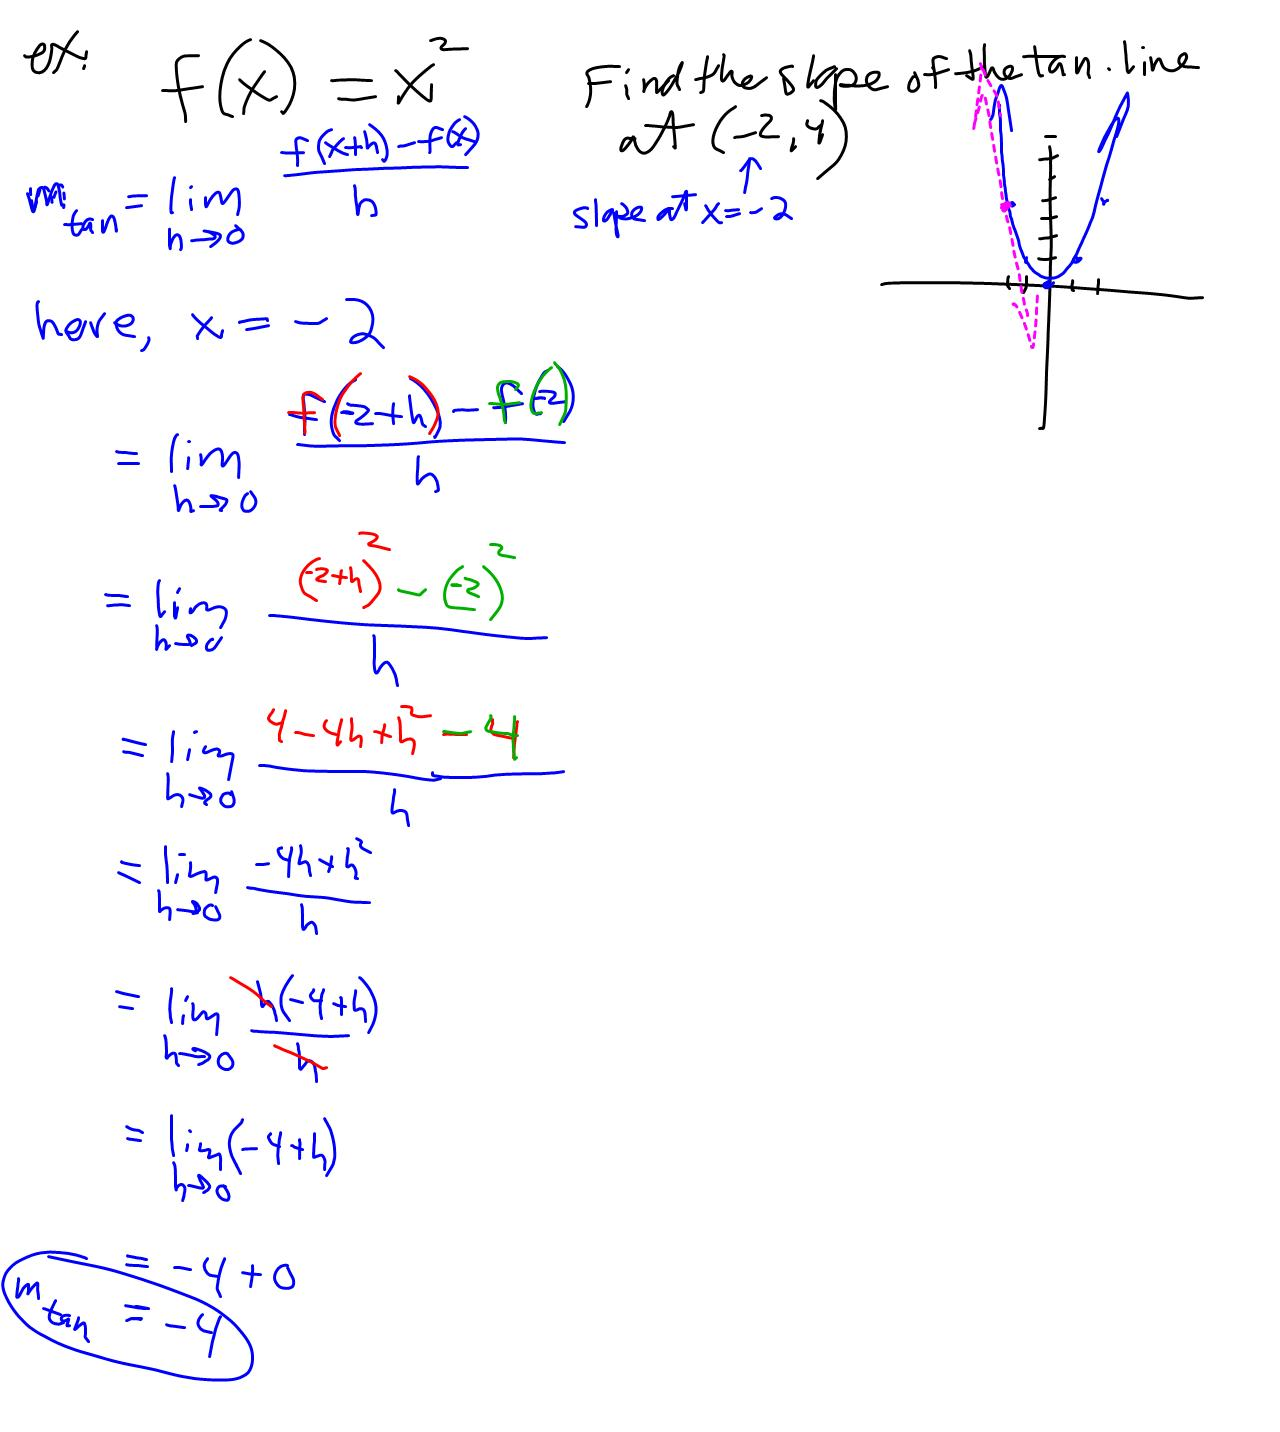 ex. f(x) = x²
Find the slope of the tan. line
at (-2, 4)
↑
slope at x = -2
m_tan = lim_{h→0} (f(x+h) - f(x))/h
here, x = -2
= lim_{h→0} (f(-2+h) - f(-2))/h
= lim_{h→0} ((-2+h)² - (-2)²)/h
= lim_{h→0} (4 - 4h + h² - 4)/h
= lim_{h→0} (-4h + h²)/h
= lim_{h→0} h(-4+h)/h
= lim_{h→0} (-4+h)
= -4 + 0
m_tan = -4